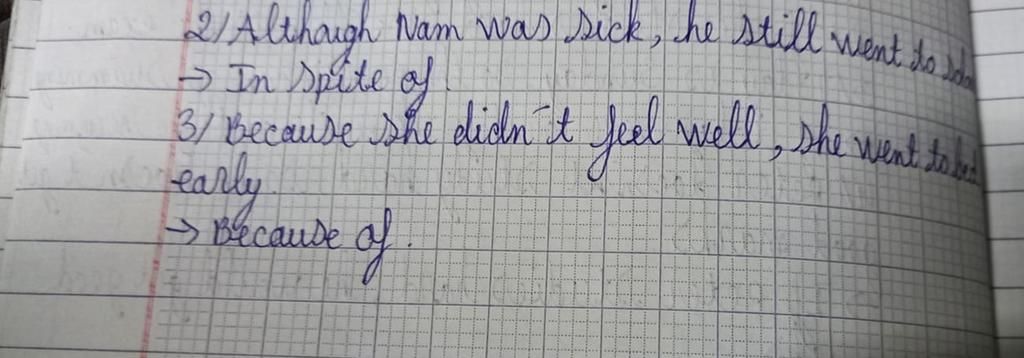 2/ Although Nam was sick, he still went to
→ In spite of
3/ Because she didn't feel well, she went to bed
early.
→ Because of.